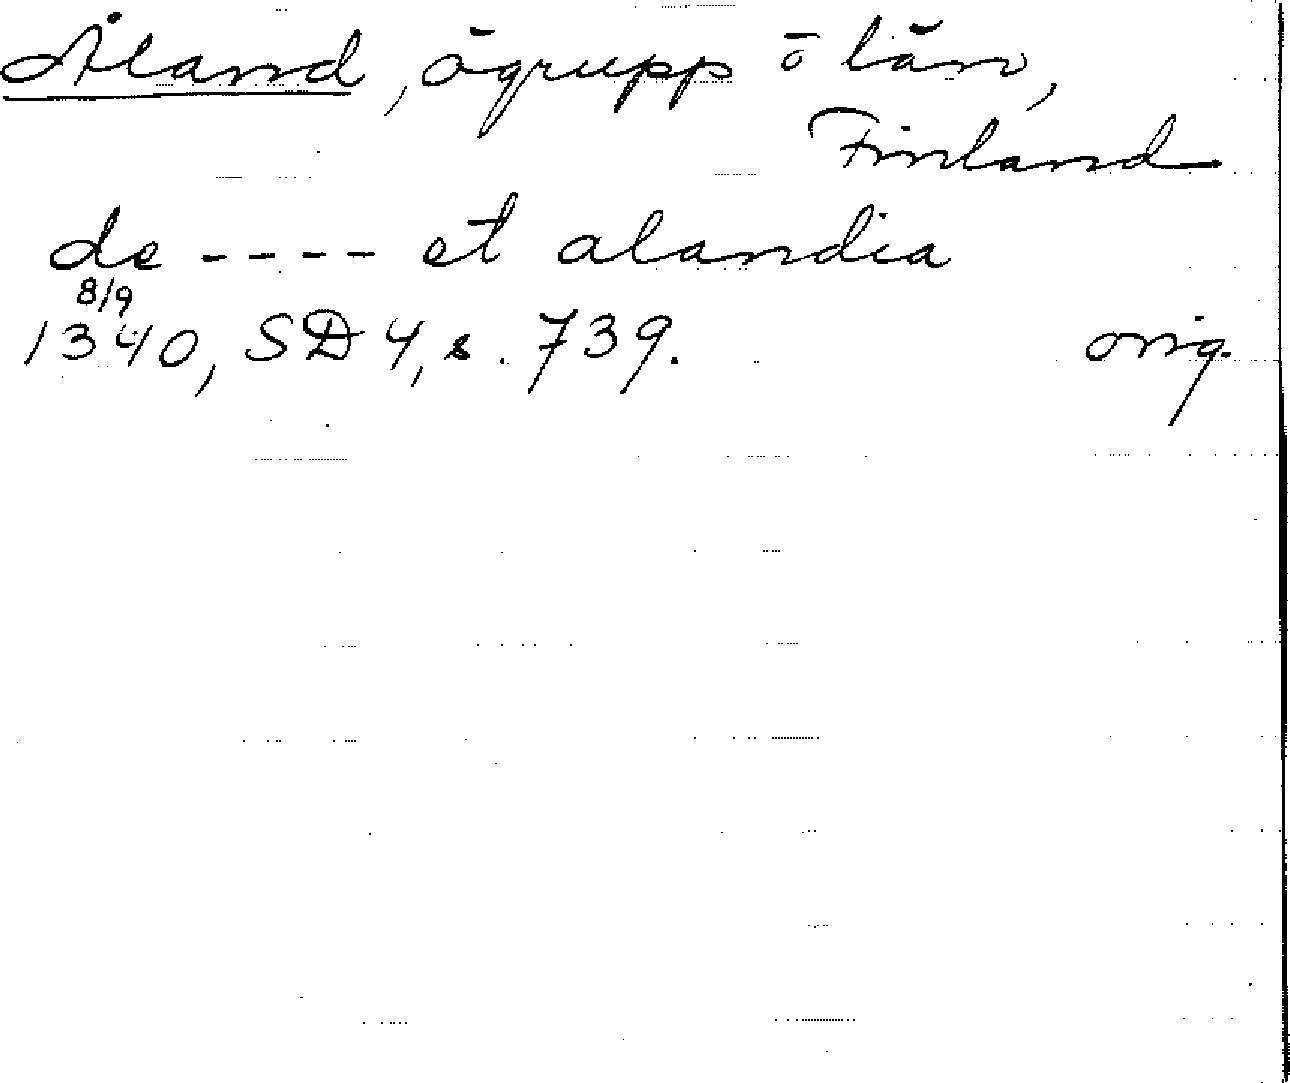 Åland, ögrupp o län,
Finland
de ---- et alandia
8/9
1340, SD 4, s. 739. orig.